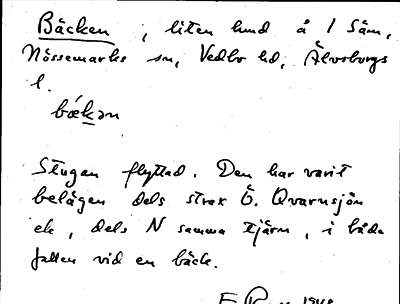 Bäcken, liten lund å 1 Säm,
Nössemarks sn, Vedbo hd, Älvsborgs
l.
bǽkən
Stugan flyttad. Den har varit
belägen dels strax Ö. Qvarnsjön
ek, dels N samma tjärn, i båda
fallen vid en bäck.